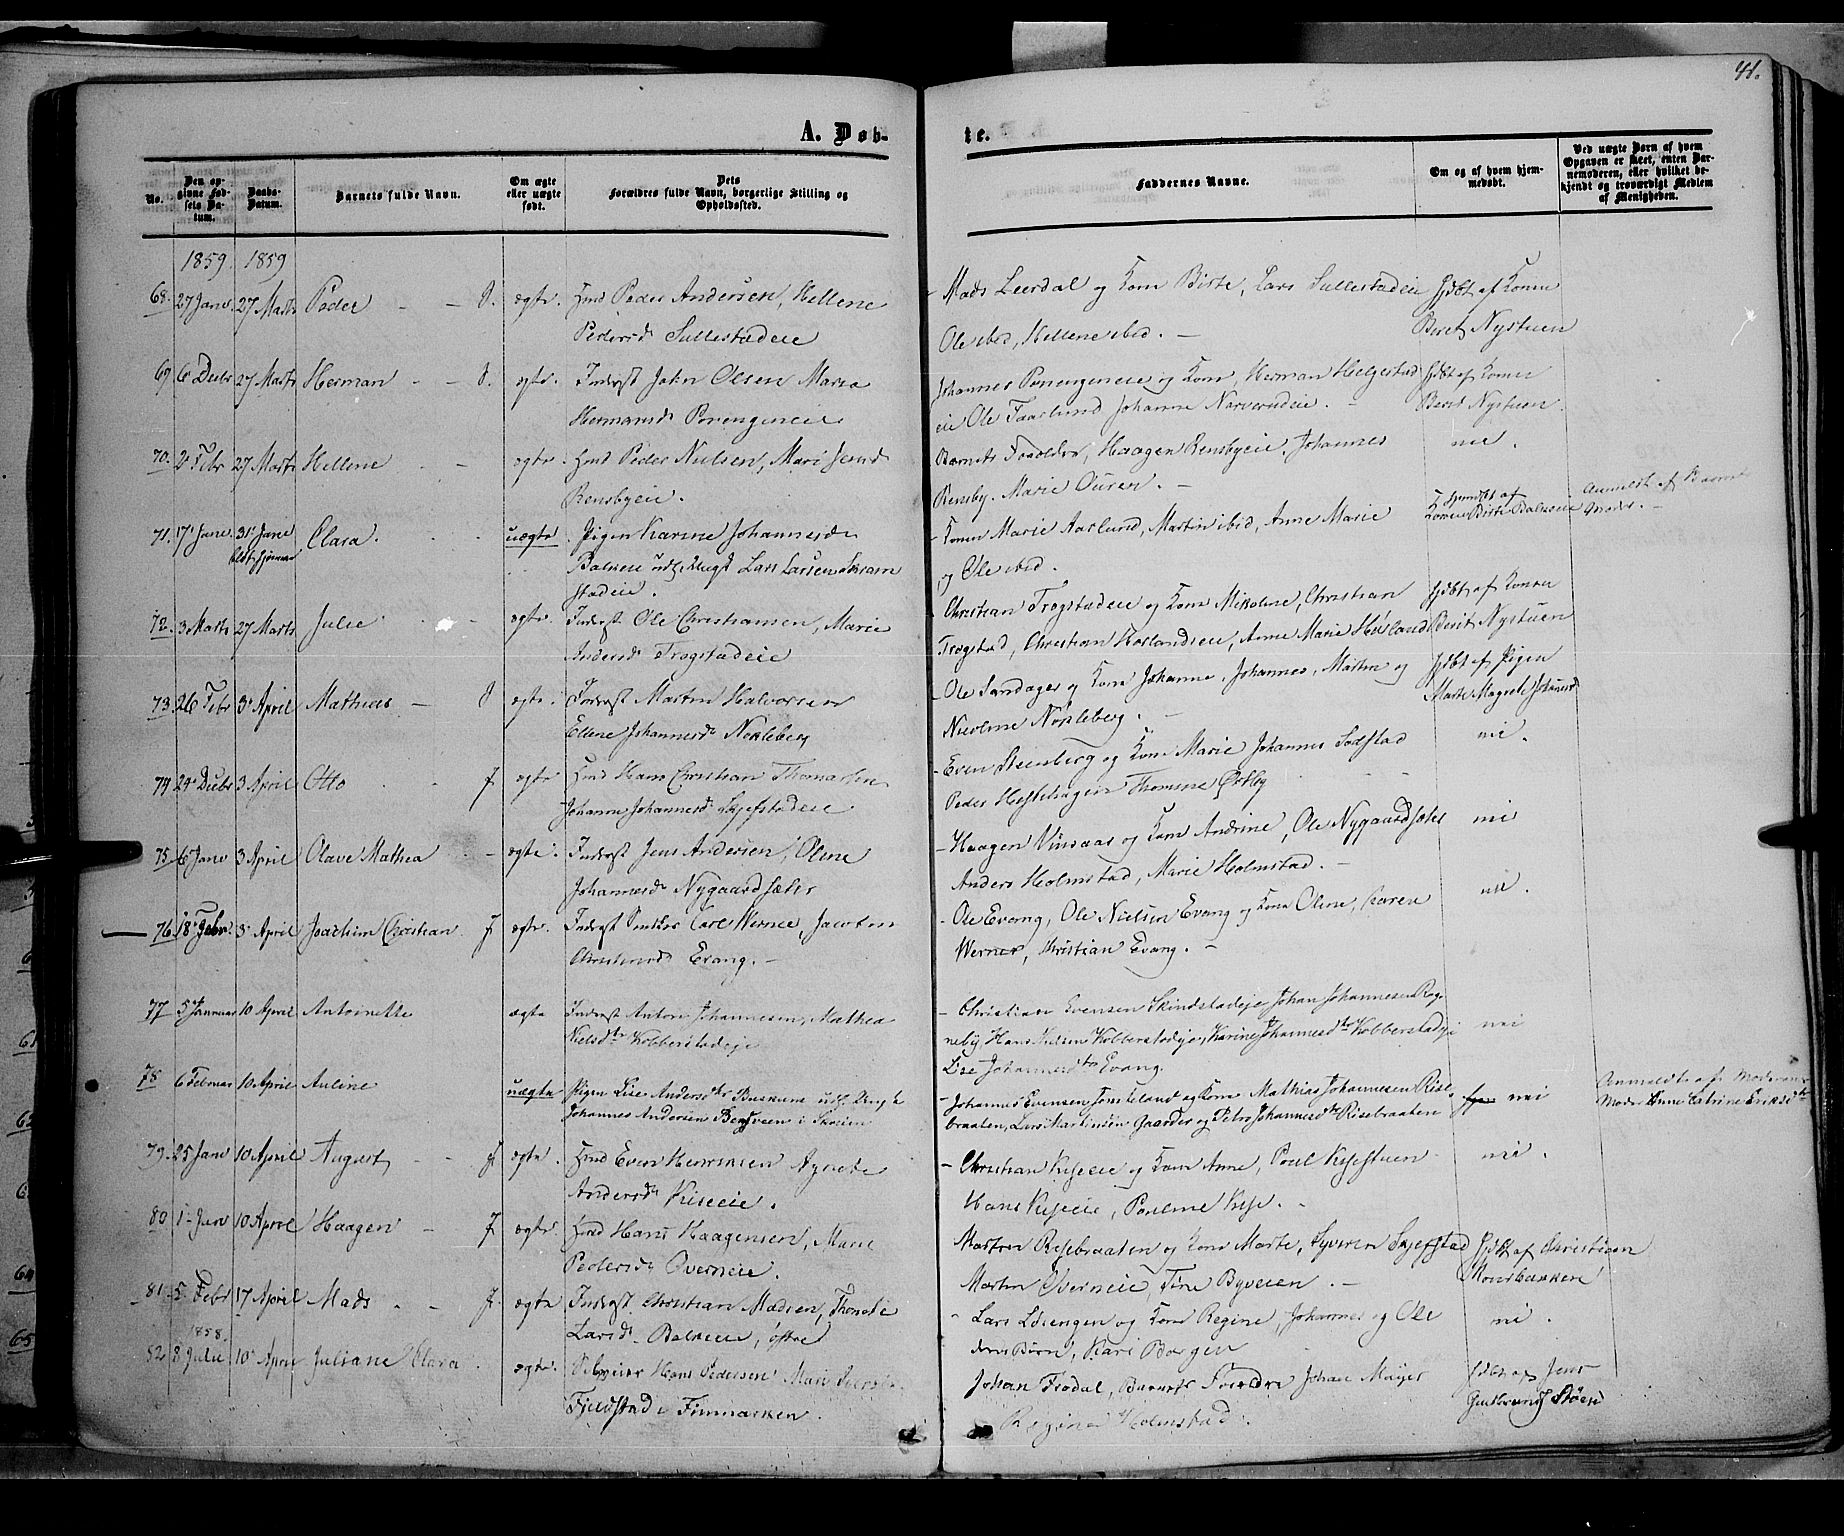 41.
A. Døb-
te.
No.
Den op-
givne Fød-
sels Da-
tum.
Daabs-
Datum.
Barnets fulde Navn.
Om ægte
eller uægte
født.
Dets
Forældres fulde Navn, borgerlige Stilling og
Opholdssted.
Faddernes Navne.
Om og af hvem hjem-
medøbt.
Ved uægte Børn af hvem
Opgaven er skeet, enten Bar-
nemoderen, eller hvilket be-
kjendt og troværdigt Medlem
af Menigheden.
1859. 1859
68. 27 Janr 27 Marts Peder ægte. Hmd Peder Andersen, Hellene
Pedersd Sullestadeie
Mads Leerdal og Kone Birte, Lars Sullestadeie hjdbt af Konen
Ole ibid, Hellene ibid. Beret Nystuen
69 6 Decbr 27 Marts Herman ægte. Inderst John Olsen Maria
Hermansd Porengeneie
Johannes Porengeneie og Kone, Herman Helgestad hjdbt af Konen
eie Ole Faarlund Johanne Narverudeie. Berit Nystuen.
70. 2 Febr 27 Marts Hellene ægte. Hmd Peder Nielsen, Mari Jensd
Rensbyeie.
Barnets Forældre, Haagen Rensbyeie, Johannes nei.
Rensby, Marie Ouren.
71. 17 Janr 31 Janr Clara. uægte. Pigen Karine Johannesd
Balkeie Lars Larsen Skram
stadeie.
Konen Marie Aaslund, Martin ibid, Anne Marie
og Ole ibid.
hjemdbt af
Konen Birte Balkeeie
Anmeldt af Barnets
Moder.
72. 3 Marts 27 Marts Julie ægte. Inderst Ole Christiansen, Marie
Andersd Trogstadeie
Christian Trogstadeie og Kone Nikoline, Christian hjdbt af Konen
Trogstad, Christian Horlandseie, Anne Marie Horlands Berit Nystuen
73. 26 Febr 3 April Mathias ægte. Inderst Martin Halvorsen
Ellene Johannesd Nøkleberg
Ole Sandager og Kone Johanne, Johannes, Martin og hjdbt af Pigen
Nicoline Nøkleberg. Marte Magrete Johannesd
74 24 Decbr 3 April Otto ægte Hmd Hans Christian Thomassen
Johanne Johannesd Skjefstadeie
Even Steenberg og Kone Marie Johannes Sodstad nei.
Peder Hestehagen Thomine Østby
75. 6 Janr 3 April Olave Mathea ægte. Inderst Jens Andersen, Oline
Johannesd Nygaardsæter
Haagen Vinsaas og Kone Andrine, Ole Nygaardsæter nei
Anders Holmstad, Marie Holmstad.
76. 18 Febr. 3 April Joachim Christian ægte. Inderst Carl Werner, Jacobine
Christensd Evang.
Ole Evang, Ole Nielsen Evang og Kone Oline, Karen nei.
Werner, Christian Evang.
77 5 Januar 10 April Antoinette ægte Inderst Anton Johannesen, Mathea
Nielsdtr Kobberstadeje
Christian Evensen Skindstadeje Johan Johannesen Rog
neby Hans Nielsen Kobberstadeje, Karine Johannesdtr Kobberstadeje nei
Lise Johannesdtr Evang.
78 6 Februar 10 April Auline uægte Pigen Lise Andersdtr Buskerud
Johannes Andersen Bergsveen i Skoien
Johannes Evensen og Kone Mathias Johannesen Rise- nei
braaten, Lars Martinsen Gaarder og Petro Johannesdtr Risebraaten
Anmeldt af Moderens
Moder Anne Catrine Eriksdtr
79. 25 Janr 10 April August ægte Hmd Even Henriksen Agnete
Andersd Kiseeie.
Christian Kiseeie og Kone Anne, Poul Kisestuen nei.
Hans Kiseeie, Pauline Kise.
80 1 Janr 10 April Haagen ægte Hmd Hans Haagensen, Marie
Pedersd Overneie.
Morten Risebraaten og Kone Marte, Syveren Skjefstad hjdbt af Christian
Martin Overneie, Tine Byveien. Monsbakken
81. 5 Febr 17 April Mads ægte Inderst Christian Madsen, Thonette
Larsd Balkeeie, østre
Lars Løsengen og Kone Regine, Johannes og Ole nei.
deres Børn, Kari Borgen
1858.
82 8 Julie 10 April Juliane Clara. ægte. Selveier Hans Pedersen Mari
Fjeldstad i Finmarken.
Johan Frodal, Barnets Forældre Johan Mayer hjdbt af Jens
Regine Holmstad. Støen